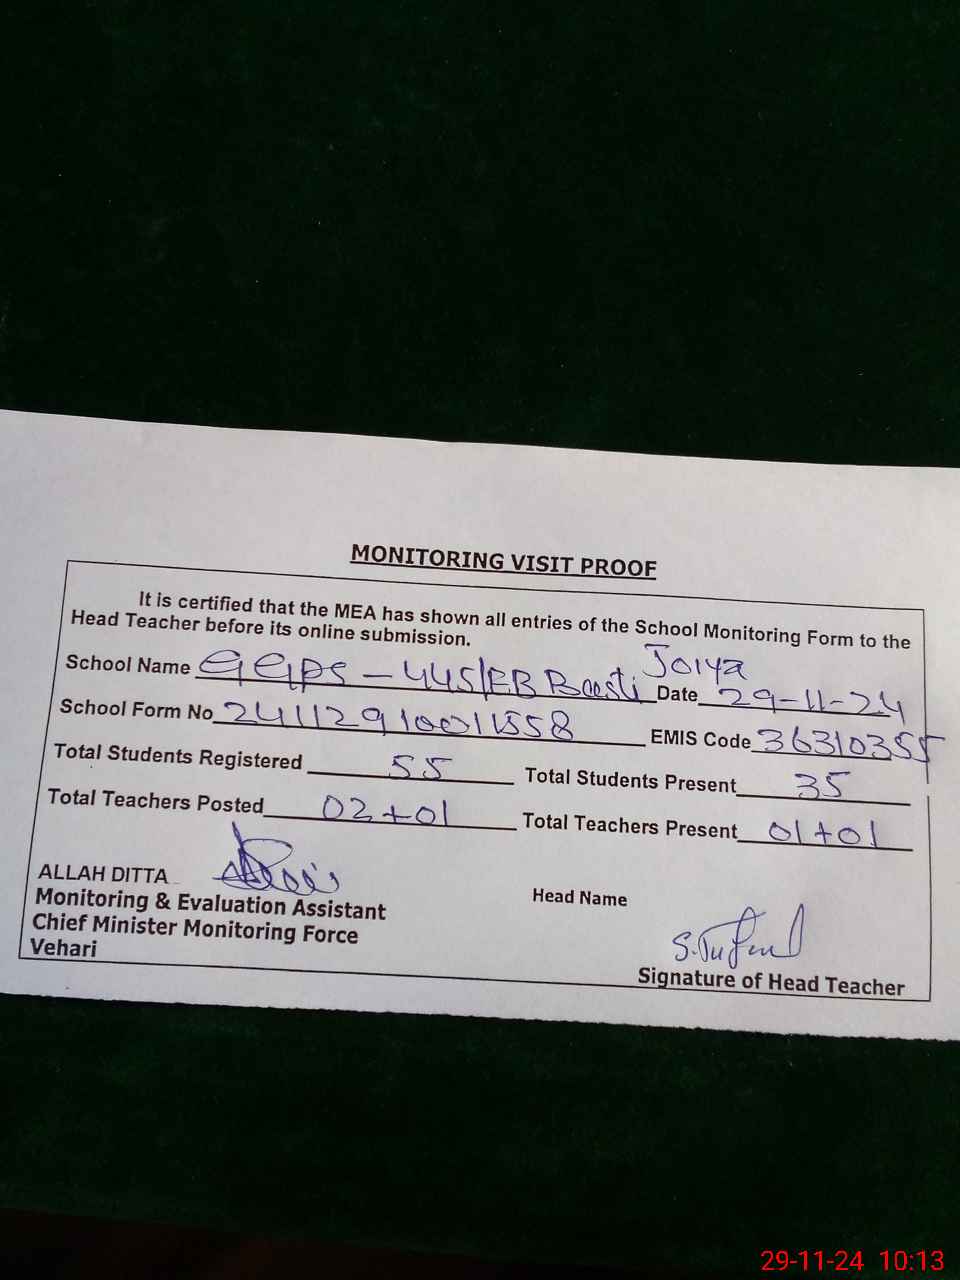 MONITORING VISIT PROOF
It is certified that the MEA has shown all entries of the School Monitoring Form to the
Head Teacher before its online submission.
School Name GGPS - 445/EB Basti Joiya Date 29-11-24
School Form No 241129100011558 EMIS Code 36310355
Total Students Registered 55 Total Students Present 35
Total Teachers Posted 02+01 Total Teachers Present 01+01
ALLAH DITTA
Monitoring & Evaluation Assistant
Chief Minister Monitoring Force
Vehari
Head Name
Signature of Head Teacher
29-11-24 10:13